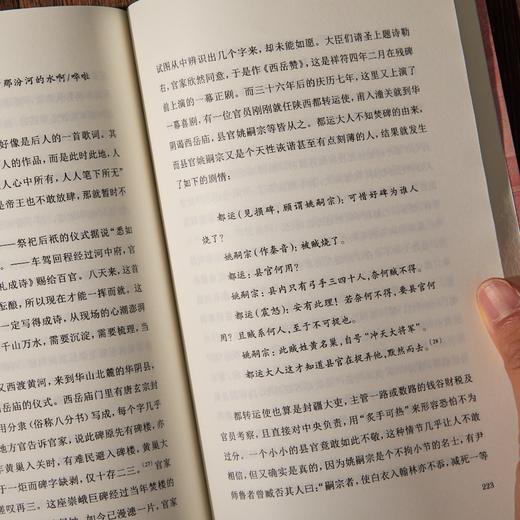 那汾河的水啊/哗啦
好像是后人的一首歌词。其
人的作品，而是此时此地，人
人心中所有，人人笔下所无”
是帝王也不敢放肆，那就暂时不
——祭祀后祇的仪式据说“悉如
。——车驾回程经过河中府，官
礼成诗》赐给百官。八天来，这首
酝酿，所以现在才能一挥而就。这
一定写得成诗，从现场的心潮澎湃
千山万水，需要沉淀，需要梳理，当
又西渡黄河，来到华山北麓的华阴县，
岳庙的仪式。西岳庙里有唐玄宗封
用分隶（俗称八分书）写成，每个字几乎
地方官告诉官家，说此碑原先有碑楼，黄
年黄巢入关时，有难民避入碑楼，黄巢大
于一炬而碑字缺剥，仅十存二三，(27)官家
嗟叹再三。这座崇峨巨碑经过当年焚楼的
如今已漫漶一片，官家
试图从中辨识出几个字来，却未能如愿。大臣们请圣上题诗勒
右，官家欣然同意，于是作《西岳赞》，这是祥符四年二月在残碑
前上演的一幕正剧。而三十六年后的庆历七年，这里又上演了
一幕喜剧，有一位官员刚刚就任陕西都转运使，甫入潼关就到华
阴谒西岳庙，县官姚嗣宗等皆从之。都运大人不知焚碑的由来，
而县官姚嗣宗又是个天性诙谐甚至有点刻薄的人，结果就发生
了如下的剧情：
都运（见损碑，顾谓姚嗣宗）：可惜好碑为谁人
烧了？
姚嗣宗（作秦音）：被贼烧了。
都运：县官何用？
姚嗣宗：县内只有弓手三四十人，奈何贼不得。
都运（震怒）：安有此理！若奈何不得，要县官何
用？且贼系何人，至于不可捉也。
姚嗣宗：此贼姓黄名巢，自号“冲天大将军”。
都运大人这才知道县官在捉弄他，默然而去。(28)
都转运使也算是封疆大吏，主管一路或数路的钱谷财税及
官员考察，且直接对中央负责，用“炙手可热”来形容恐怕不为
过分。一个小小的县官竟敢如此不敬，这种情节几乎让人不敢
相信，但又确实是真的，因为姚嗣宗是个不拘小节的名士，有尹
师鲁者曾臧否其人曰：“嗣宗者，使白衣入翰林亦不忝，减死一等
223